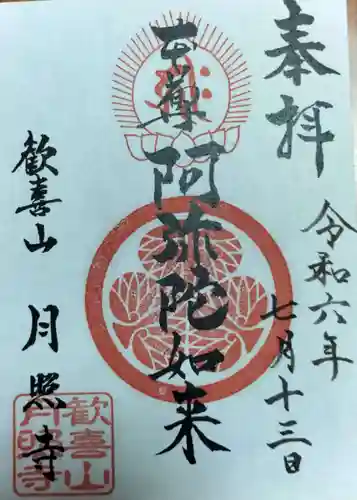 奉拝
令和六年
七月十三日
本尊
阿弥陀如来
歓喜山
月照寺
歓喜山
月照寺